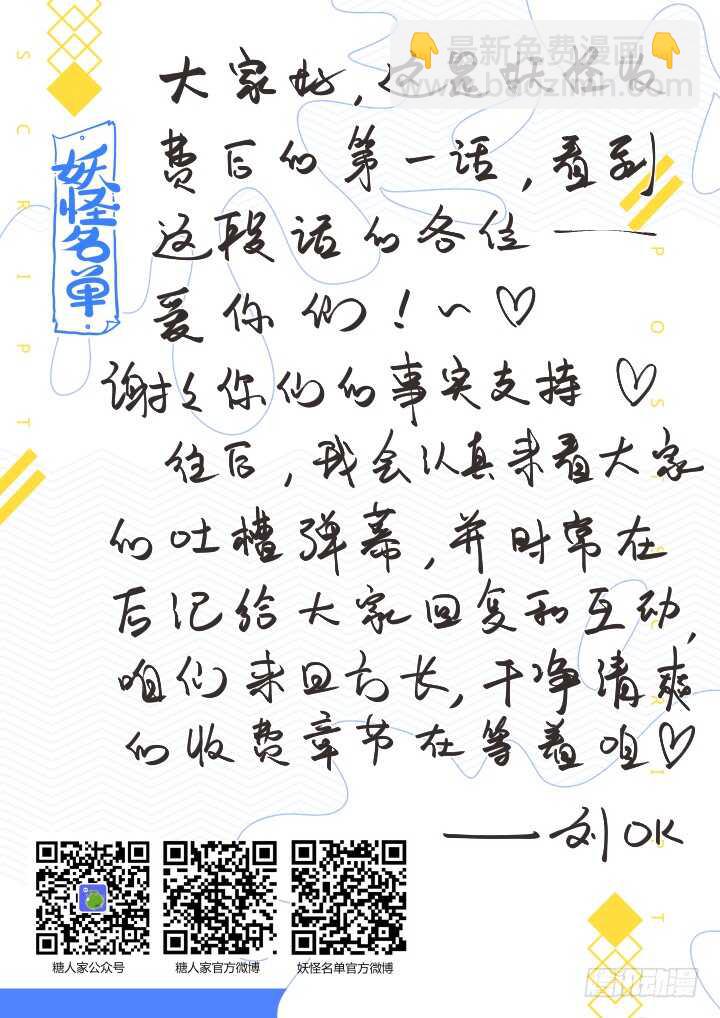 👇最新免费漫画👇
www.baozimh.com
大家好,这是妖怪收
费后的第一话,看到
这段话的各位——
爱你们!~♡
谢谢你们的事实支持♡
往后,我会认真来看大家
的吐槽弹幕,并时常在
后记给大家回复和互动,
咱们来日方长,干净清爽
的收费章节在等着咱♡
——刘OK
妖怪名单
SCRIPT
POSTSCRIPT
糖人家公众号
糖人家官方微博
妖怪名单官方微博
腾讯动漫